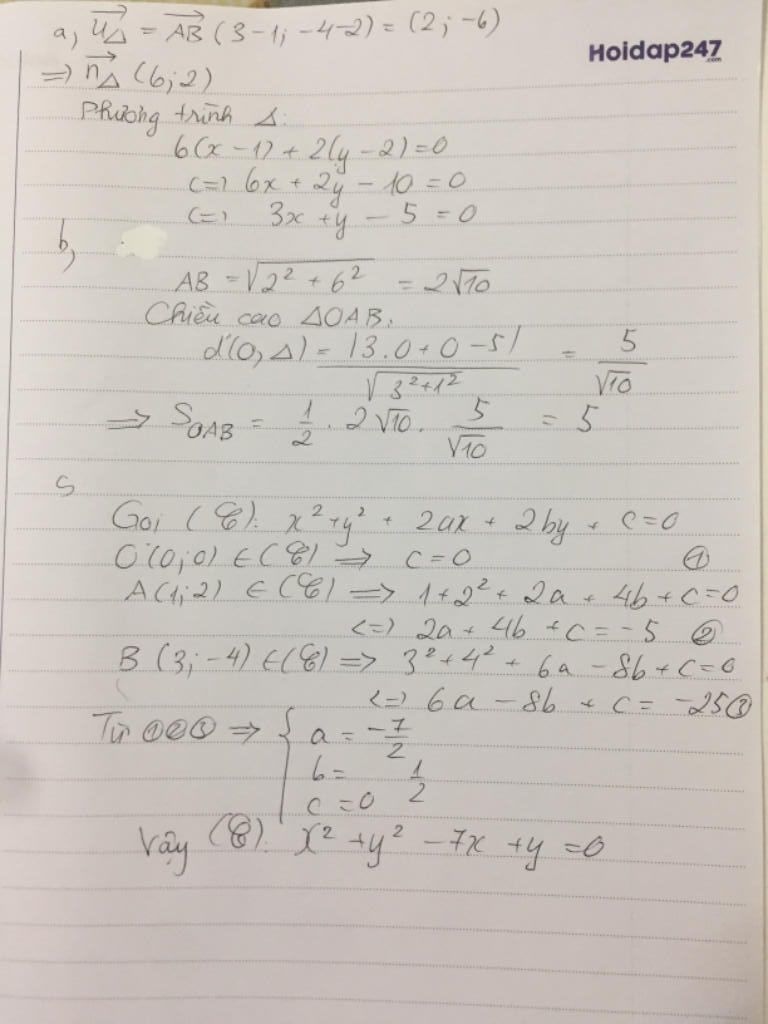 a, u⃗_Δ = AB⃗ (3-1; -4-2) = (2; -6)
Hoidap247.com
=> n⃗_Δ (6; 2)
Phương trình Δ:
6(x - 1) + 2(y - 2) = 0
<=> 6x + 2y - 10 = 0
<=> 3x + y - 5 = 0
b,
AB = √(2² + 6²) = 2√10
Chiều cao ΔOAB:
d(O, Δ) = |3.0 + 0 - 5| / √(3² + 1²) = 5/√10
=> S_OAB = 1/2 . 2√10 . 5/√10 = 5
Gọi (C): x² + y² + 2ax + 2by + c = 0
O(0; 0) ∈ (C) => c = 0 ①
A(1; 2) ∈ (C) => 1 + 2² + 2a + 4b + c = 0
<=> 2a + 4b + c = -5 ②
B (3; -4) ∈ (C) => 3² + 4² + 6a - 8b + c = 0
<=> 6a - 8b + c = -25 ③
Từ ①②③ => { a = -7/2
b = 1/2
c = 0
Vậy (C): x² + y² - 7x + y = 0